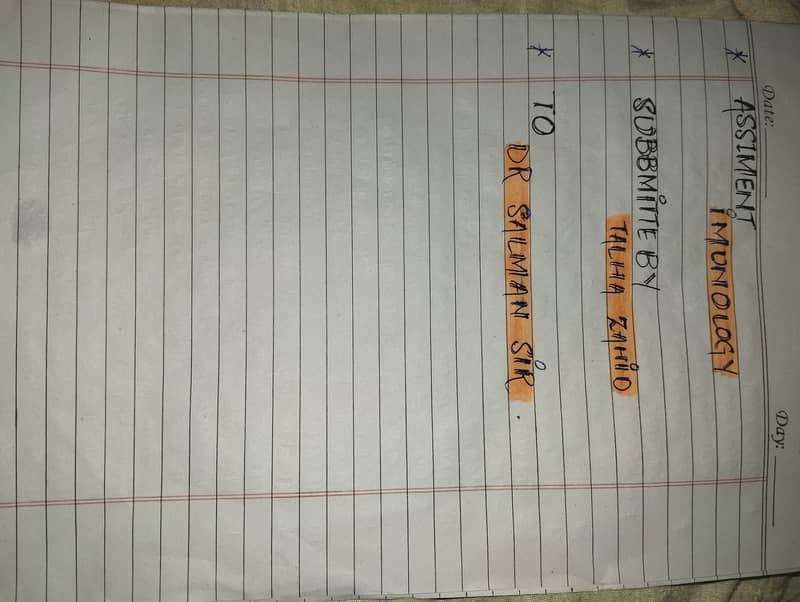 Date:
Day:
* ASSIMENT
IMUNOLOGY
* SUBBMITTE BY
TALHA ZAHID
* TO
DR SALMAN SIR.